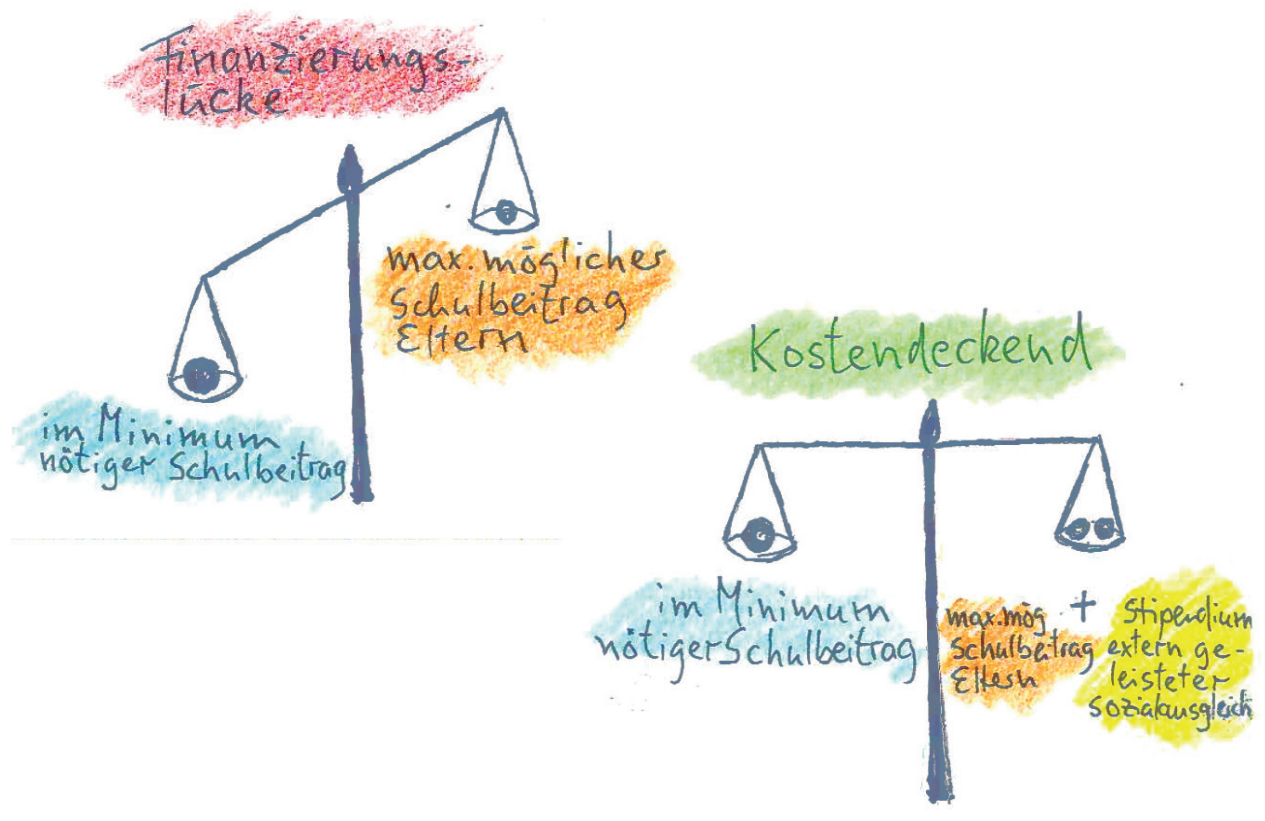 Finanzierungs-
lücke
max. möglicher
Schulbeitrag
Eltern
im Minimum
nötiger Schulbeitrag
Kostendeckend
im Minimum
nötiger Schulbeitrag
max. mög
Schulbeitrag
Eltern
+
Stipendium
extern ge-
leisteter
sozialausgleich